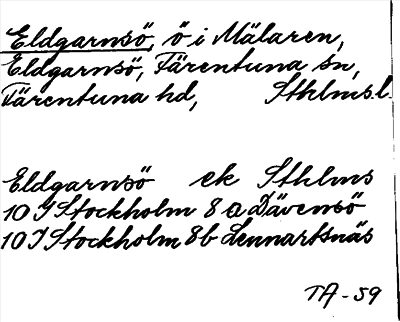 Eldgarnsö, ö i Mälaren,
Eldgarnsö, Färentuna sn,
Färentuna hd, Sthlms.l.
Eldgarnsö ek Sthlms
10 I Stockholm 8 a Dävensö
10 I Stockholm 8b Lennartsnäs
TA-59